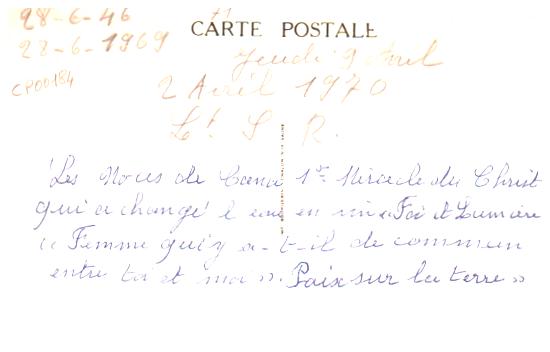 28-6-46
CARTE POSTALE
28-6-1969
Jeudi 9 Avril
CP00184
2 Avril 1970
Lt S R.
Les Noces de Cana 1er Miracle du Christ
qui a changé l'eau en vin « Foi et Lumière
« Femme qu'y a-t-il de commun
entre toi et moi ». Paix sur la terre »